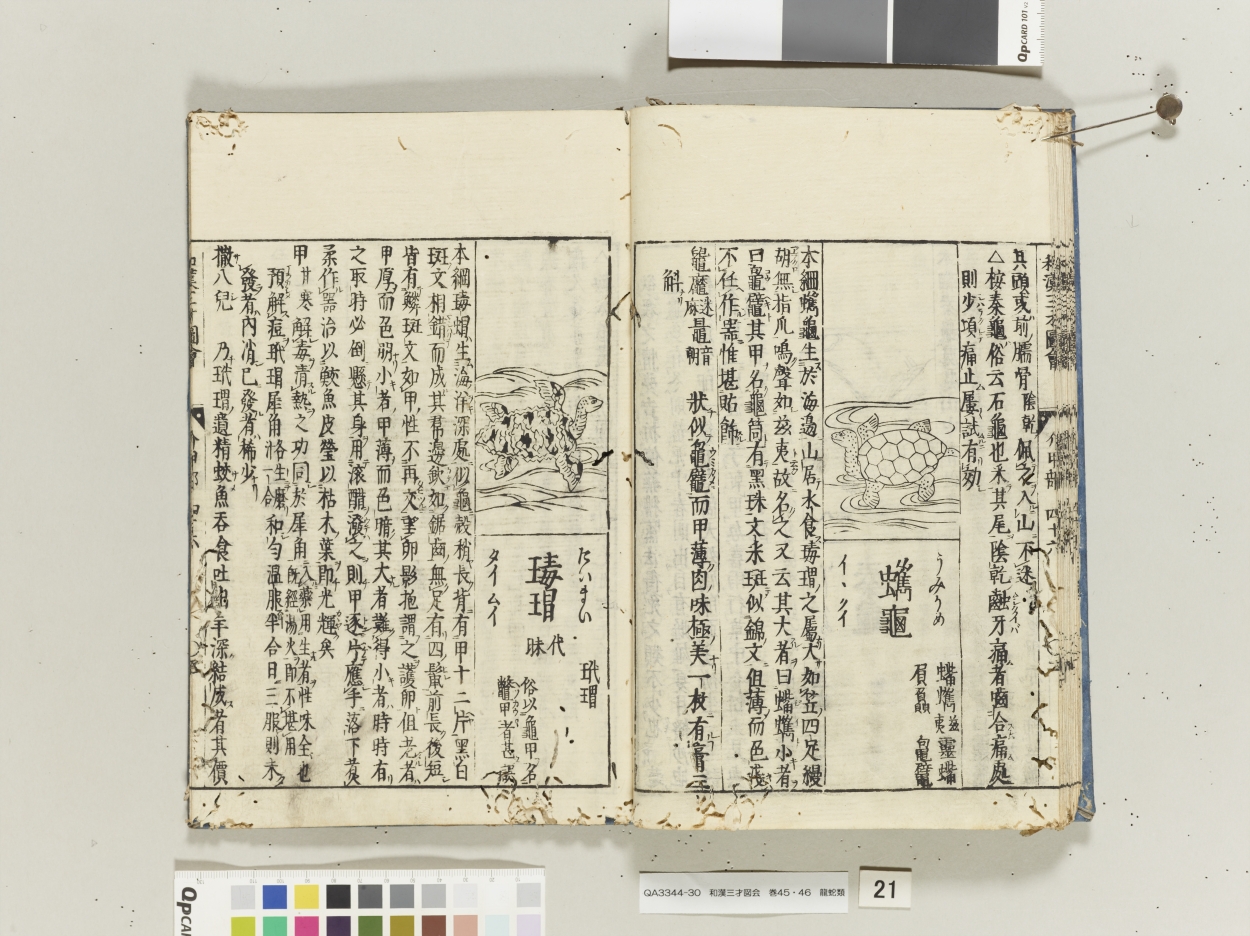 和漢三才圖會 介甲部 四十六
其頭或前臑骨陰乾佩之入山不迷
△按秦龜俗云石龜也釆其尾陰乾䘌牙痛者嚙合痛處
則少頃痛止屢試有効
うみかめ
蠵龜
蟕蠵 茲夷 靈蠵
贔屓 鼊
本綱蠵龜生於海邉山居水食瑇瑁之屬大如笠四足縵
胡無指爪鳴聲如茲夷故名之又云其大者曰蟕蠵小者
曰鼊其甲名龜筒有黑珠文采斑似錦文但薄而色淺
不任作噐惟堪貼餙
音朝 狀似龜鼊而甲薄肉味極美一枚有膏三
斛
たいまい
瑇瑁
タイ ムイ
代昧
玳瑁
俗以龜甲名
鼈甲者甚誤
本綱瑇瑁生海洋深處似龜殼稍長背有甲十二片黑白
斑文相錯而成其帬邊缺如鋸齒無足有四鬣前長後短
皆有鱗斑文如甲性不再交望卵影抱謂之護卵但老者
甲厚而色明小者甲薄而色暗其大者難得小者時時有
之取時必倒懸其身用滚醋潑之則甲逐片應手落下煑
柔作噐治以鮫魚皮瑩以枯木葉即光輝矣
甲 甘寒 解毒清熱之功同於犀角入藥用生者性味全也既經湯火即不堪用
預解痘玳瑁犀角各生磨一合和匀温服半合日三服則未
發者内消已發者稀少
撒八兒 乃玳瑁遺精蛟魚呑食吐出年深結成者其價
QpCARD 101
QpCA
QA3344-30 和漢三才図会 巻45・46 龍蛇類
21